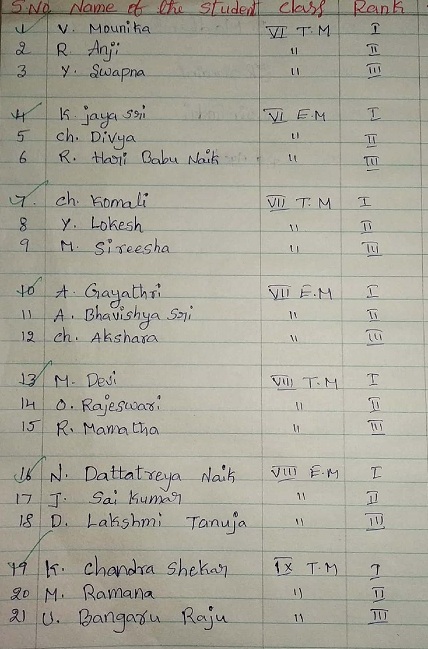 S.No Name of the Student Class Rank
1 V. Mounika VI T.M I
2 R. Anji " II
3 Y. Swapna " III
4 K. jaya Sri VI E.M I
5 Ch. Divya " II
6 R. Hari Babu Naik " III
7. Ch. Komali VII T.M I
8 Y. Lokesh " II
9 M. Sireesha " III
10 A. Gayathri VII E.M I
11 A. Bhavishya Sri " II
12 Ch. Akshara " III
13 M. Devi VIII T.M I
14 O. Rajeswari " II
15 R. Mamatha " III
16 N. Dattatreya Naik VIII E.M I
17 J. Sai Kumar " II
18 D. Lakshmi Tanuja " III
19 K. Chandra Shekar IX T.M I
20 M. Ramana " II
21 U. Bangaru Raju " III